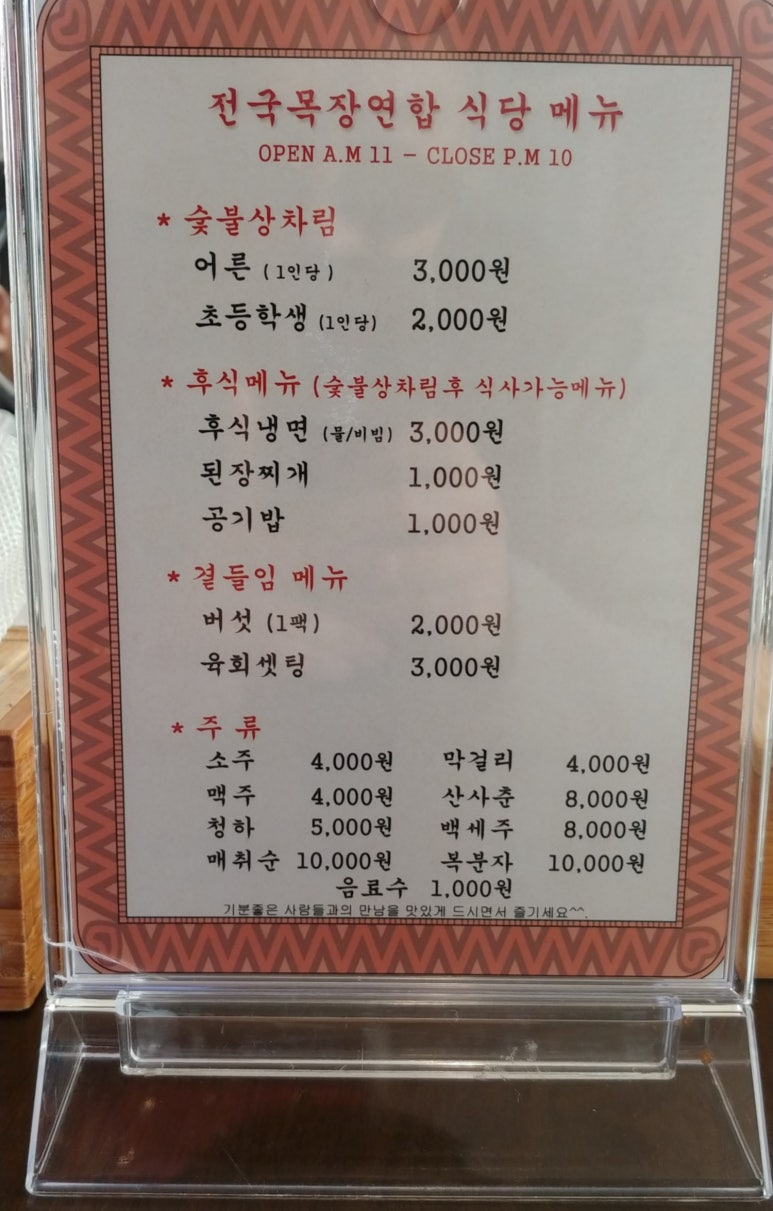 전국목장연합 식당 메뉴
OPEN A.M 11 – CLOSE P.M 10
* 숯불상차림
어른 (1인당) 3,000원
초등학생 (1인당) 2,000원
* 후식메뉴 (숯불상차림후 식사가능메뉴)
후식냉면 (물/비빔) 3,000원
된장찌개 1,000원
공기밥 1,000원
* 곁들임 메뉴
버섯 (1팩) 2,000원
육회셋팅 3,000원
* 주 류
소주 4,000원 막걸리 4,000원
맥주 4,000원 산사춘 8,000원
청하 5,000원 백세주 8,000원
매취순 10,000원 복분자 10,000원
음료수 1,000원
기분좋은 사람들과의 만남을 맛있게 드시면서 즐기세요^^.